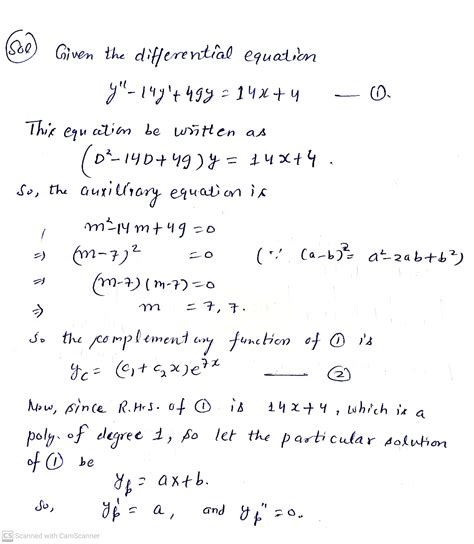 Sol Given the differential equation
y'' - 14y' + 49y = 14x + 4 — ①.
This equation be written as
(D² - 14D + 49) y = 14x + 4 .
So, the auxillary equation is
m² - 14m + 49 = 0
⇒ (m-7)² = 0 (∵ (a-b)² = a² - 2ab + b²)
⇒ (m-7)(m-7) = 0
⇒ m = 7, 7.
So the complementary function of ① is
y_c = (c₁ + c₂x)e^{7x} — ②
Now, since R.H.S. of ① is 14x+4, which is a
poly. of degree 1, so let the particular solution
of ① be
y_p = ax+b.
So, y_p' = a, and y_p'' = 0.
CS Scanned with CamScanner